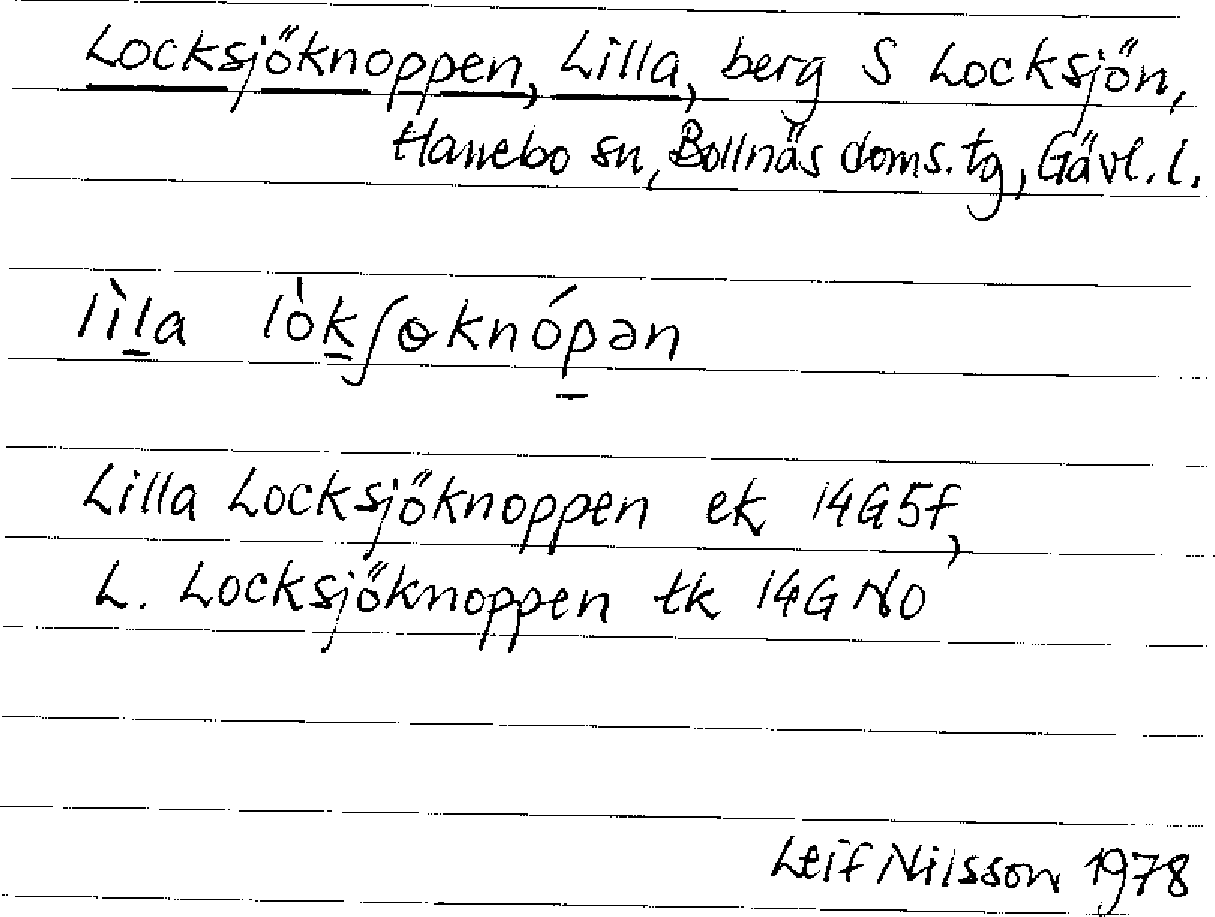 Locksjöknoppen, Lilla, berg S Locksjön,
Hanebo sn, Bollnäs doms.tg, Gävl.l.
lìl̲a lòk̲ʃɵknóp̲ən
Lilla Locksjöknoppen ek 14G5f,
L. Locksjöknoppen tk 14G NO
Leif Nilsson 1978